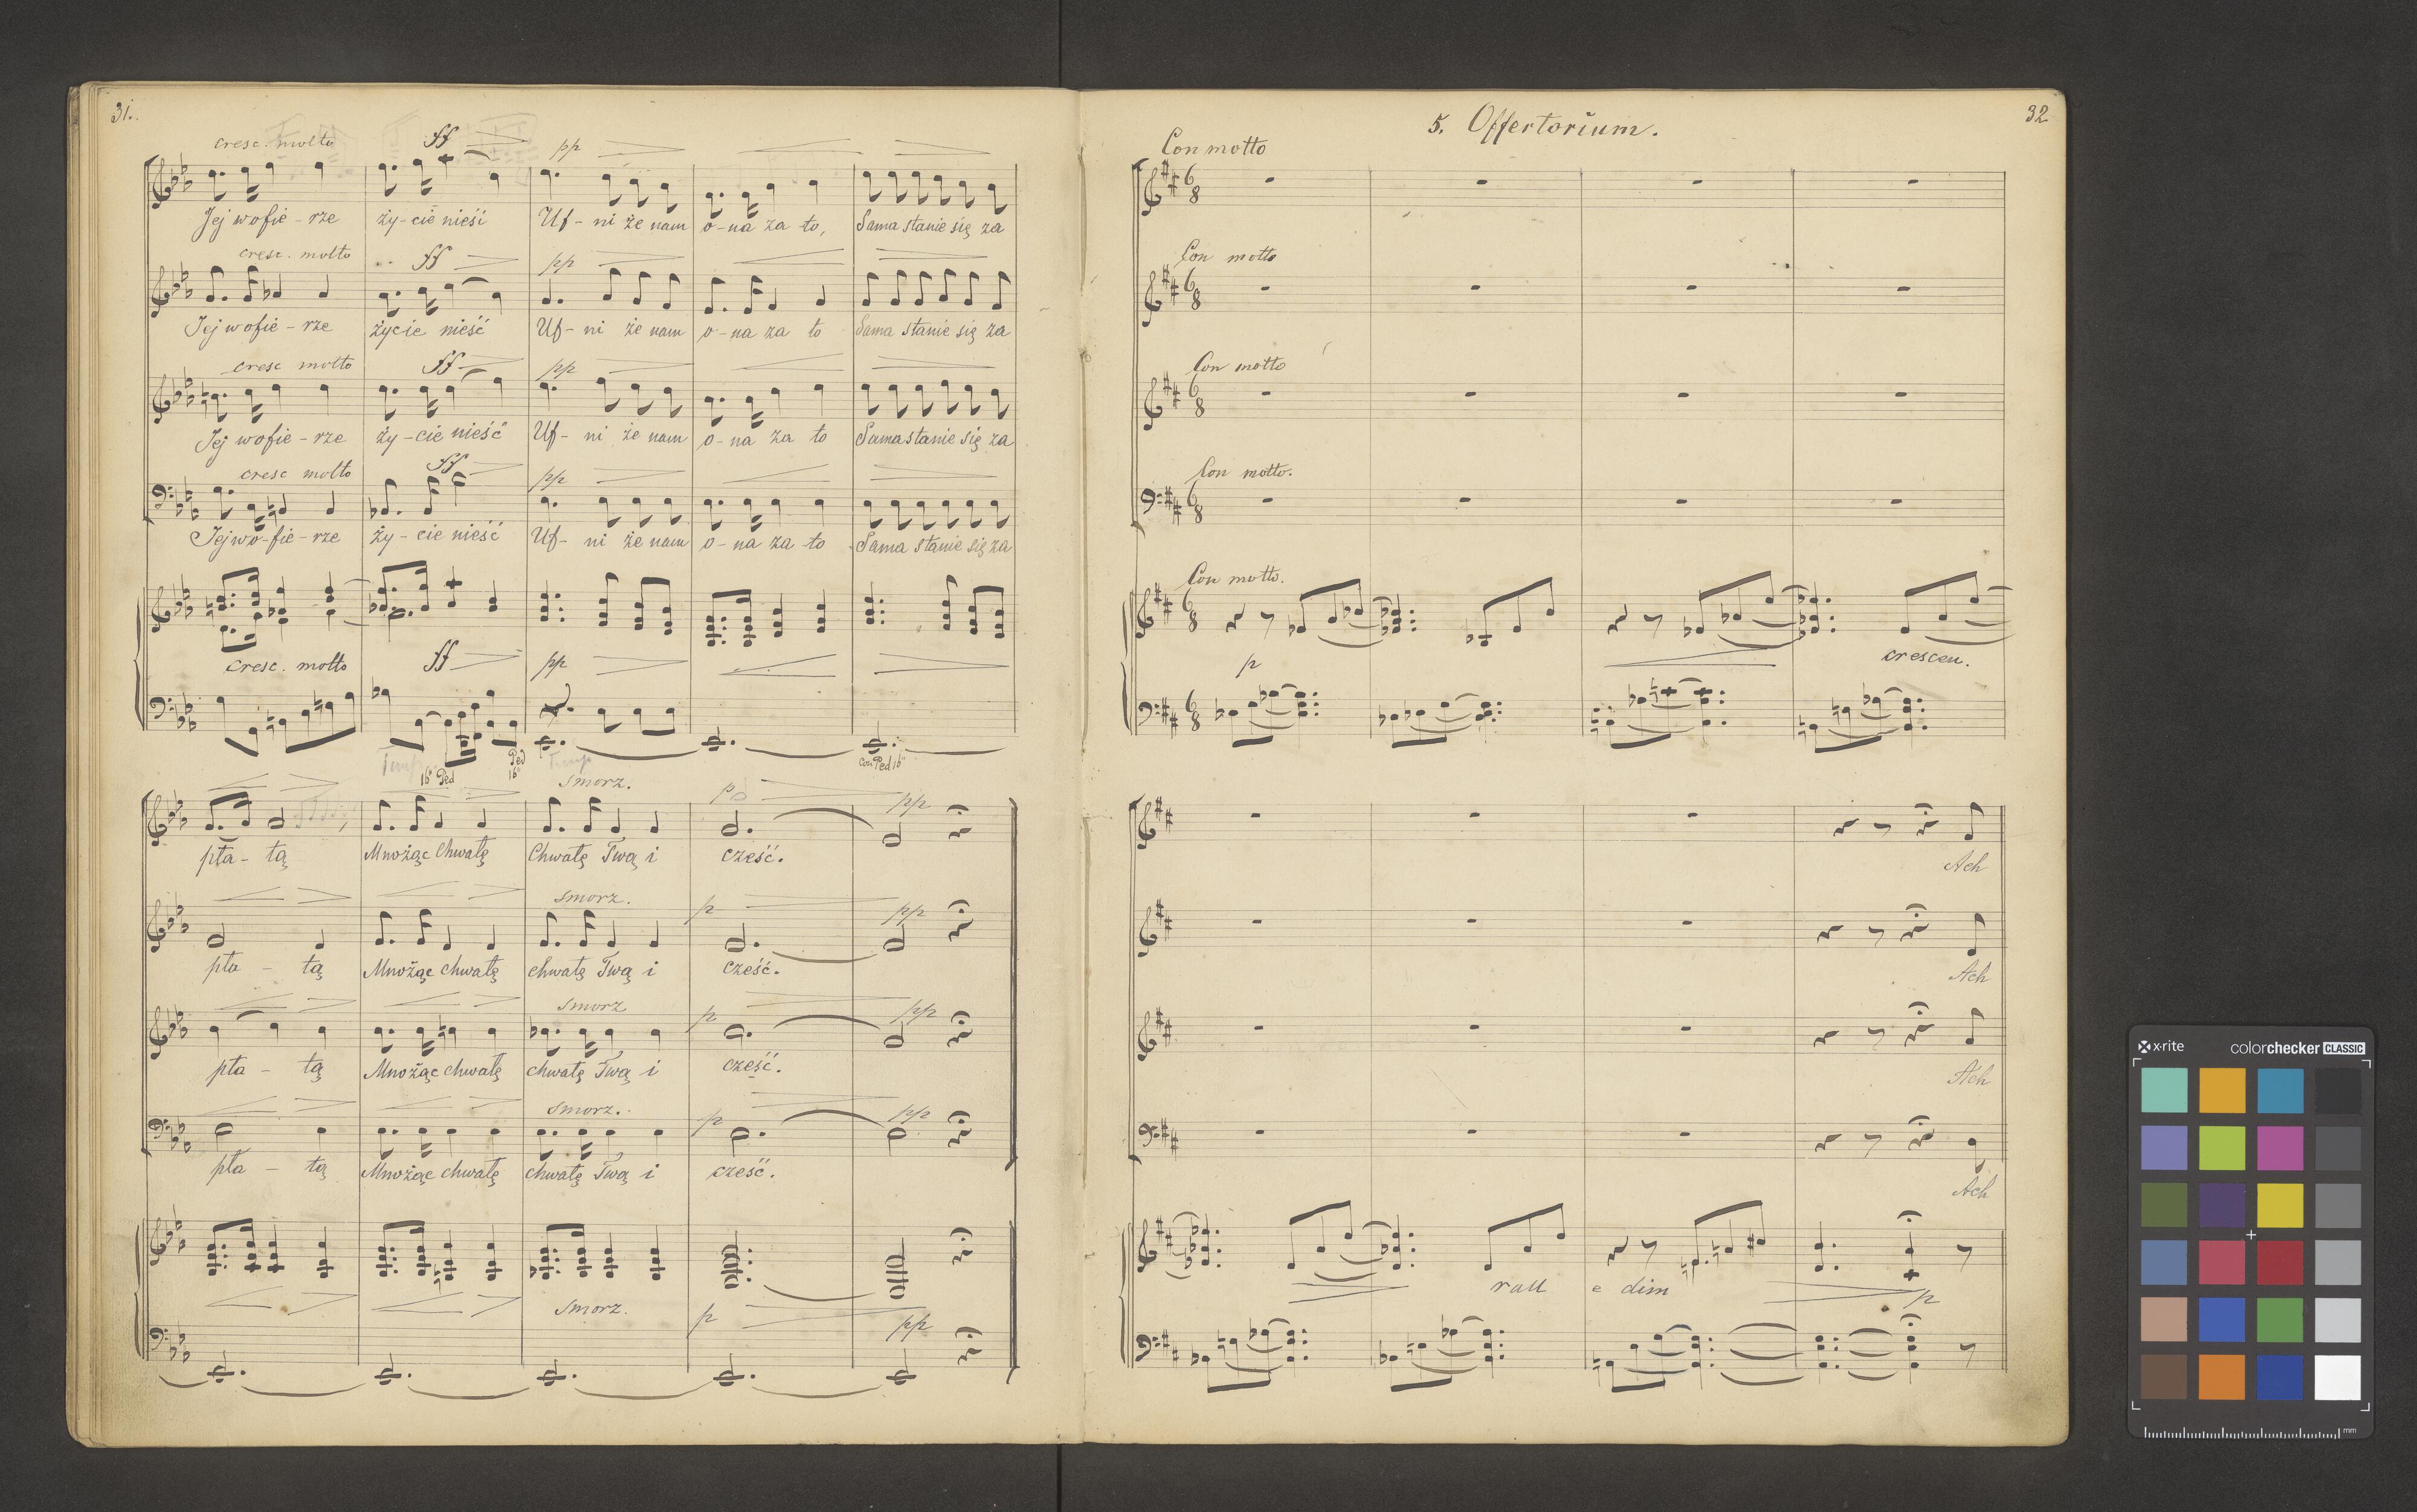 31.
cresc. molto ff pp
Jej w ofie - rze ży - cie nieść Uf - ni że nam o - na za to, Sama stanie się za
cresc. molto ff pp
Jej w ofie - rze życie nieść Uf - ni że nam o - na za to Sama stanie się za
cresc molto ff pp
Jej w ofie - rze ży - cie nieść Uf - ni że nam o - na za to Sama stanie się za
cresc molto ff pp
Jej w o - fie - rze ży - cie nieść Uf - ni że nam o - na za to Sama stanie się za
cresc. molto ff pp
Timp 16' Ped Ped 16' Timp con Ped 16'
smorz. p pp
pła - tą Mnożąc Chwałę Chwałę Twą i cześć.
smorz. p pp
pła - tą Mnożąc chwałę chwałę Twą i cześć.
smorz p pp
pła - tą Mnożąc chwałę chwałę Twą i cześć.
smorz. p pp
pła - tą Mnożąc chwałę chwałę Twą i cześć.
smorz. p pp
32
5. Offertorium.
Con motto
6 8
Con motto
6 8
Con motto
6 8
Con motto.
6 8
Con motto.
6 8
p crescen.
6 8
Ach
Ach
Ach
Ach
rall e dim p
x-rite colorchecker CLASSIC
mm